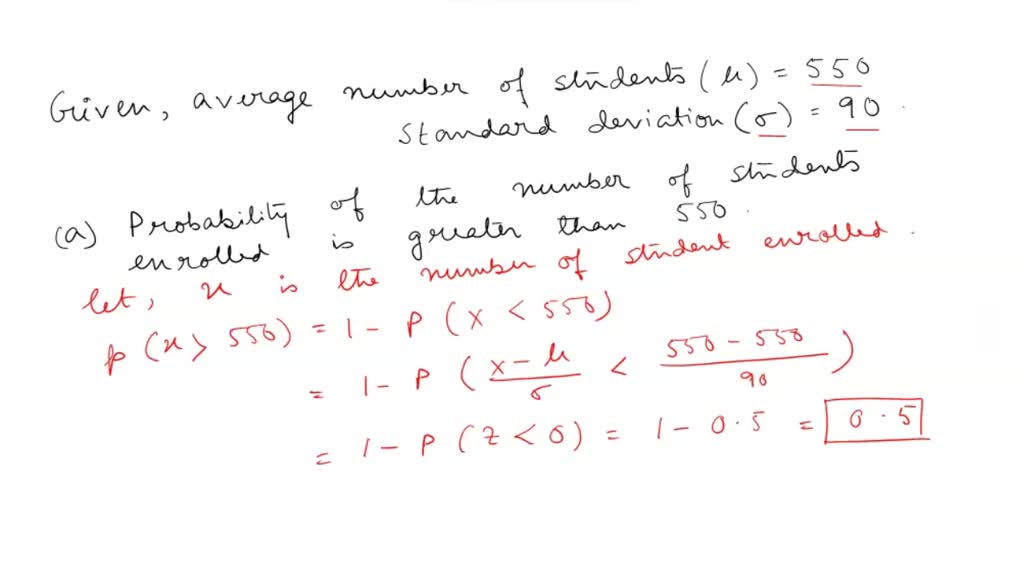 Given, average number of students (μ) = 550
standard deviation (σ) = 90.
(a) Probability of the number of students
enrolled is greater than 550.
let, x is the number of student enrolled.
p (x > 550) = 1 - P (X < 550)
= 1 - P ( (x - μ)/σ < (550 - 550)/90 )
= 1 - P (Z < 0) = 1 - 0.5 = 0.5